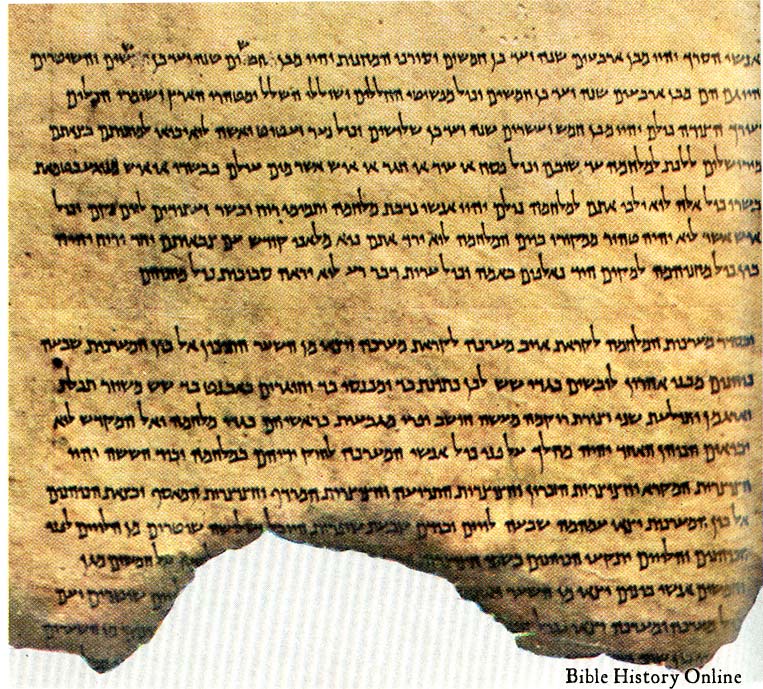 אנשי הסרך יהיו מבן ארבעים שנה ועד בן חמשים ועורכי המחנות יהיו מבן חמשים שנה ועד בן ששים והשוטרים
יהיו גם הם מבן ארבעים שנה ועד בן חמשים וכול מפשיטי החללים ושוללי השלל ומטהרי הארץ ושומרי הכלים
ועורך הצידה כולם יהיו מבן חמש ועשרים שנה ועד בן שלושים וכול נער זעטוט ואשה לוא יבואו למחנותם בצאתם
מירושלים ללכת למלחמה עד שובם וכול פסח או עור או חגר או איש אשר מום עולם בבשרו או איש מנוגע בטמאת
בשרו כול אלה לוא ילכו אתם למלחמה כולם יהיו אנשי נדבת מלחמה ותמימי רוח ובשר ועתודים ליום נקם וכול
איש אשר לוא יהיה טהור ממקורו ביום המלחמה לוא ירד אתם כיא מלאכי קודש עם צבאותם יחד ורוח יהיה
בין כול מחניהמה למקום היד כאלפים באמה וכול ערות דבר רע לוא יראה סביבות כול מחניהם
ובסדר מערכות המלחמה לקראת אויב מערכה לקראת מערכה ויצאו מן השער התיכון אל בין המערכות שבעה
כוהנים מבני אהרון לובשים בגדי שש לבן כתונת בד ומכנסי בד וחוגרים באבנט בד שש משוזר תכלת
וארגמן ותולעת שני וצורת ריקמה מעשה חושב ופרי מגבעות בראשיהם בגדי מלחמה ואל המקדש לוא
יביאום הכוהן האחד יהיה מהלך על פני כול אנשי המערכה לחזק ידיהם במלחמה וביד הששה יהיו
חצוצרות המקרא וחצוצרות הזכרון וחצוצרות התרועה וחצוצרות המרדף וחצוצרות המאסף ובצאת הכוהנים
אל בין המערכות יצאו עמהמה שבעה לויים ובידם שבעת שופרות היובל ושלושה שוטרים מן הלויים לפני
הכוהנים והלויים ותקעו הכוהנים בשתי על חמשים מגן
וחמשים אנשי בינים יצאו מן השער שוטרים ועם
כול מערכה ומערכה יצאו ככול מן השערים
Bible History Online